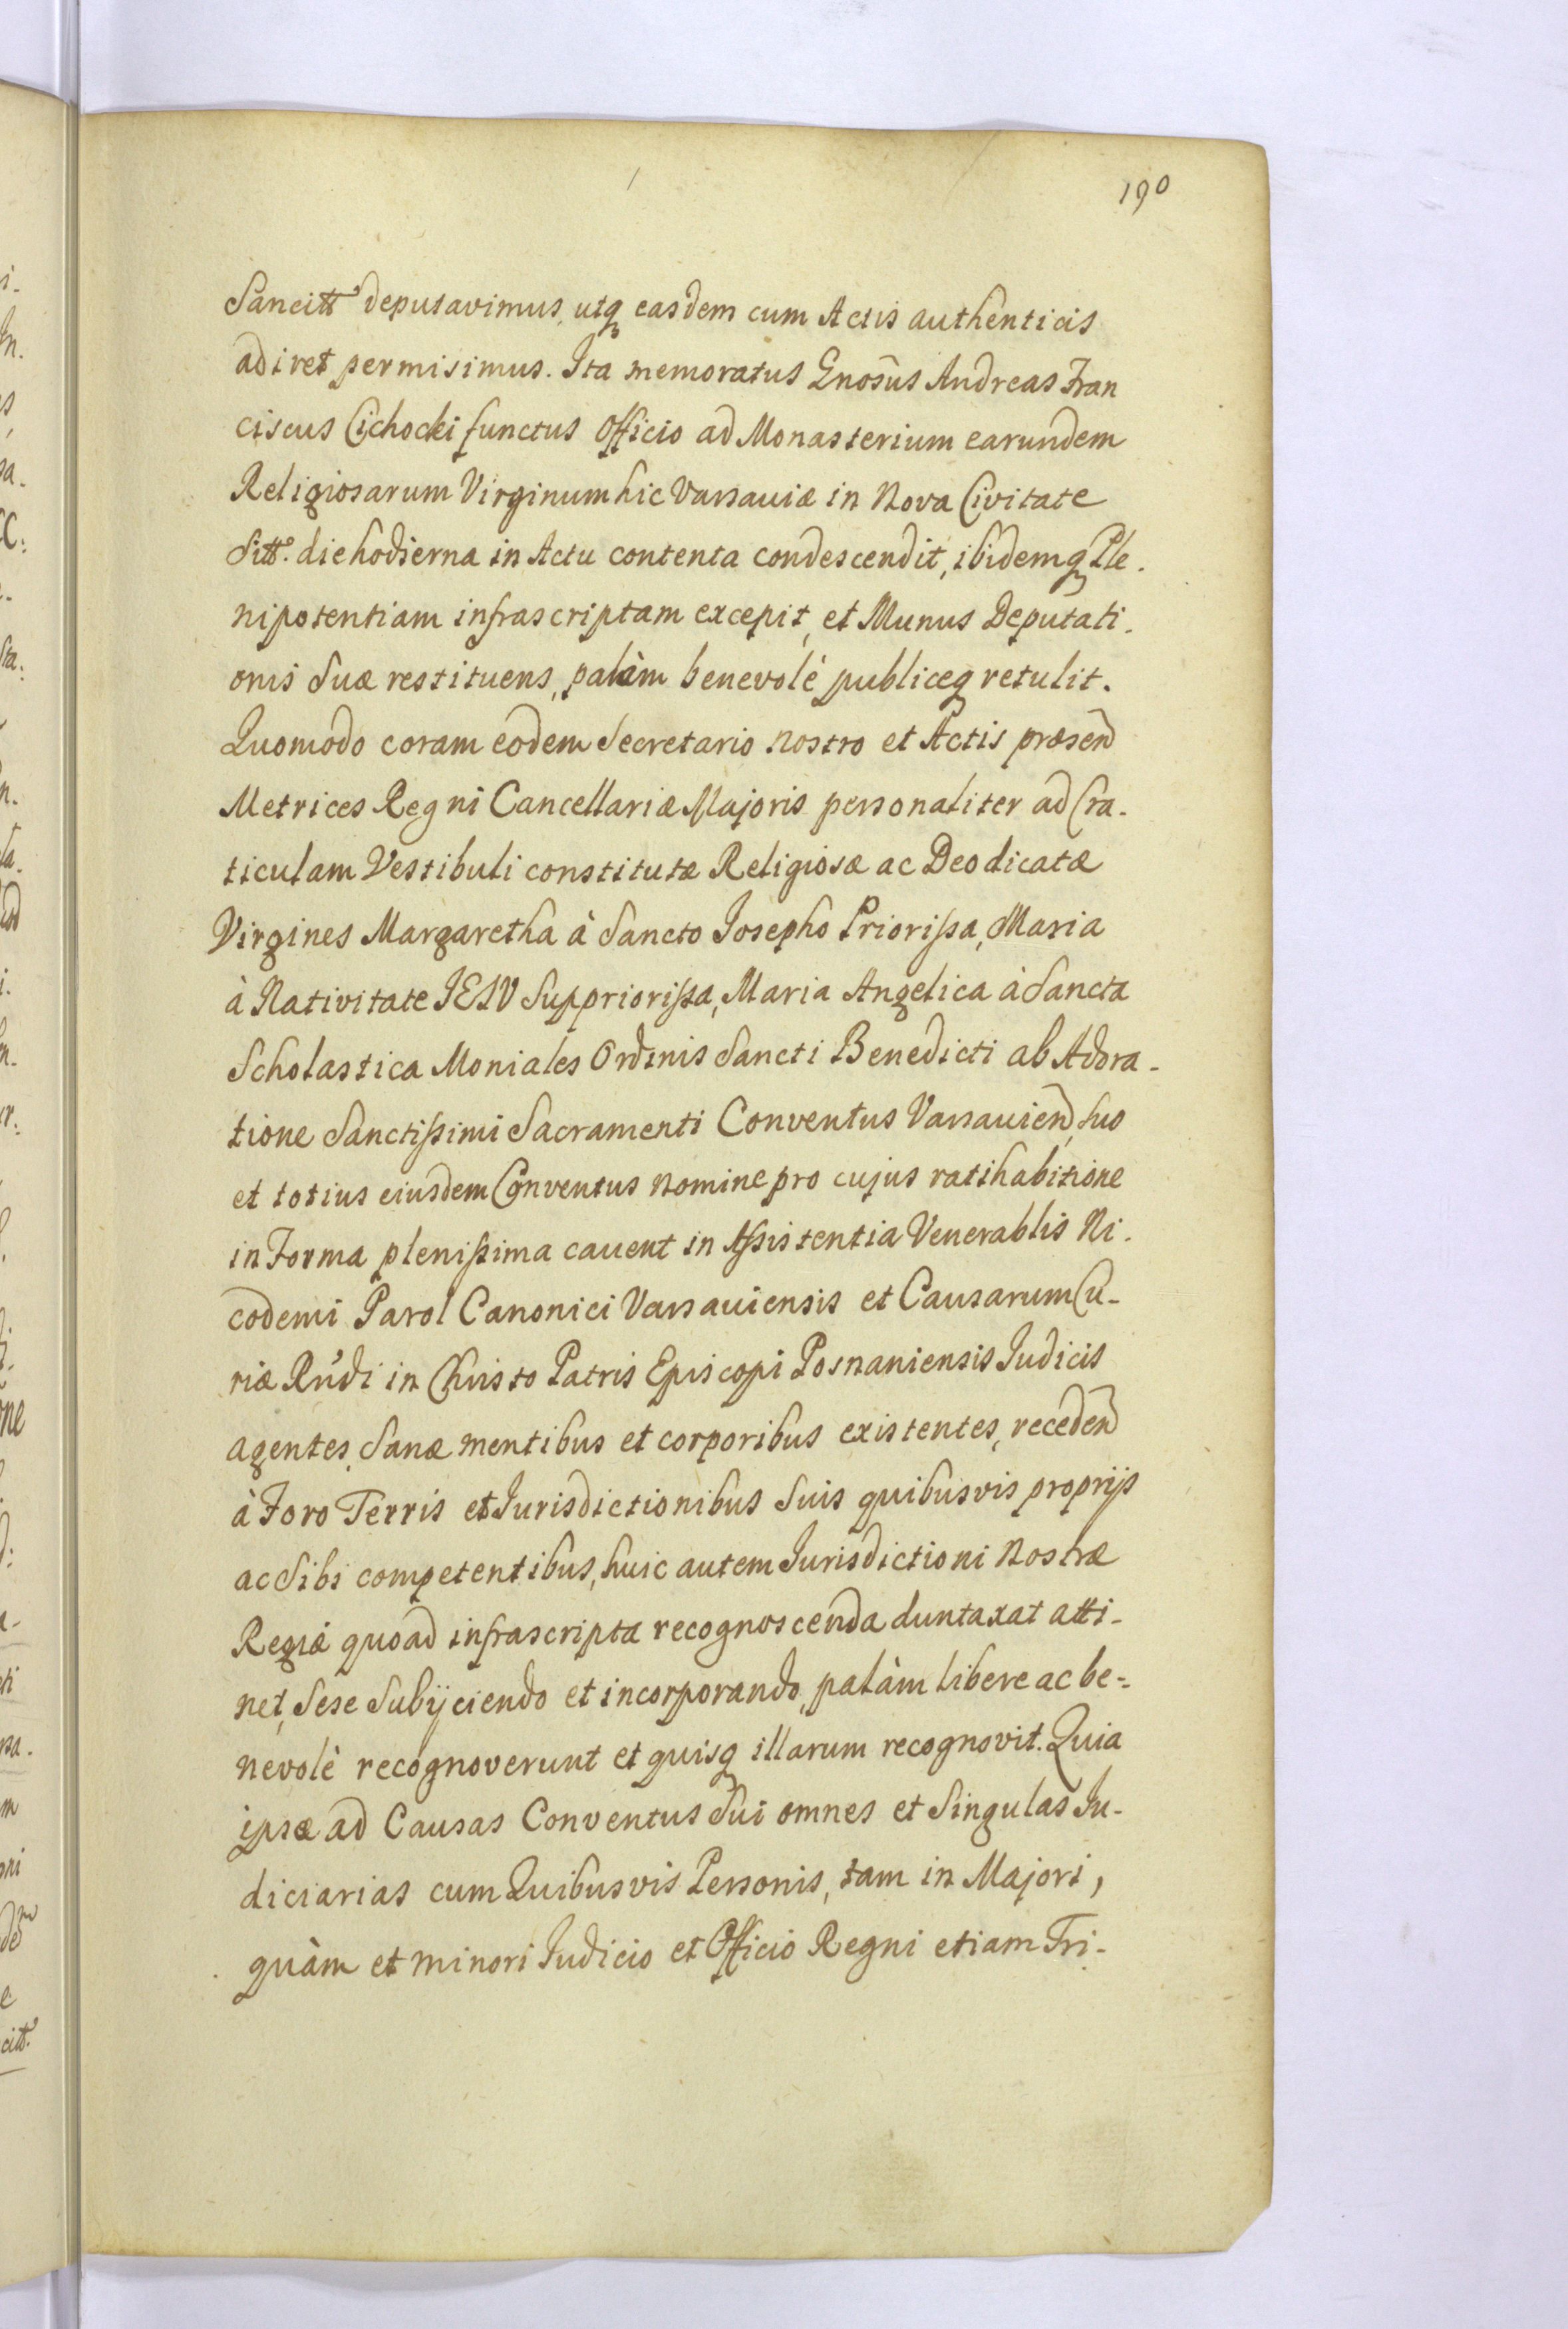 190
Sancitt' deputavimus, utq easdem cum Actis authenticis
adiret permisimus. Ita memoratus Gnosus Andreas Fran
ciscus Cichocki functus Officio ad Monasterium earundem
Religiosarum Virginum hic Varsauiæ in Nova Civitate
Sitt. die hodierna in Actu contenta condescendit, ibidemq Ple.
nipotentiam infrascriptam excepit, et Munus Deputati.
onis Suæ restituens, palàm benevolè publiceq retulit.
Quomodo coram eodem Secretario nostro et Actis præsen
Metrices Regni Cancellariæ Majoris personaliter ad Cra-
ticulam Vestibuli constitutæ Religiosæ ac Deo dicatæ
Virgines Margaretha à Sancto Josepho Priorissa, Maria
à Nativitate JESV Suppriorissa, Maria Angelica à Sancta
Scholastica Moniales Ordinis Sancti Benedicti ab Adora-
tione Sanctissimi Sacramenti Conventus Varsauien, suo
et totius eiusdem Conventus nomine pro cujus ratihabitione
in Forma plenissima cauent in Assistentia Venerablis Ni.
codemi Parol Canonici Varsauiensis et Causarum Cu-
riæ Rndi in Christo Patris Episcopi Posnaniensis Iudicis
agentes, Sanæ mentibus et corporibus existentes, receden
à Foro Terris et Jurisdictionibus Suis quibusvis proprijs
ac Sibi competentibus, huic autem Jurisdictioni Nostræ
Regiæ quoad infrascripta recognoscenda duntaxat atti-
net, Sese Subijciendo et incorporando, palàm libere ac be-
nevolè recognoverunt et quisq illarum recognovit. Quia
ipsæ ad Causas Conventus Sui omnes et Singulas Ju-
diciarias cum Quibusvis Personis, tam in Majori,
quàm et minori Iudicio et Officio Regni etiam Tri-